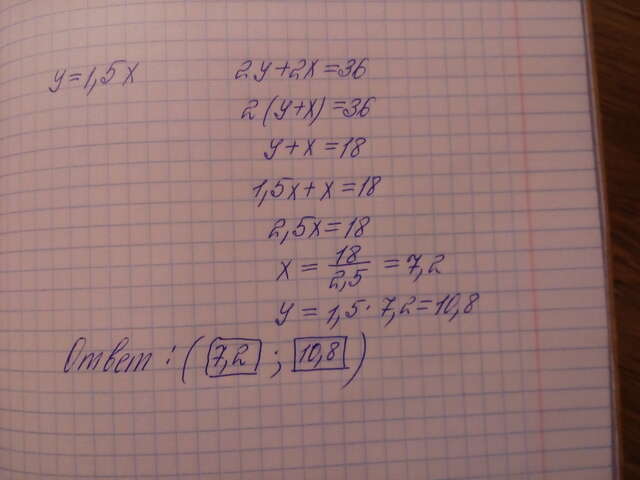 y=1,5x
2y+2x=36
2(y+x)=36
y+x=18
1,5x+x=18
2,5x=18
x = 18/2,5 = 7,2
y = 1,5·7,2=10,8
Ответ: (7,2 ; 10,8)